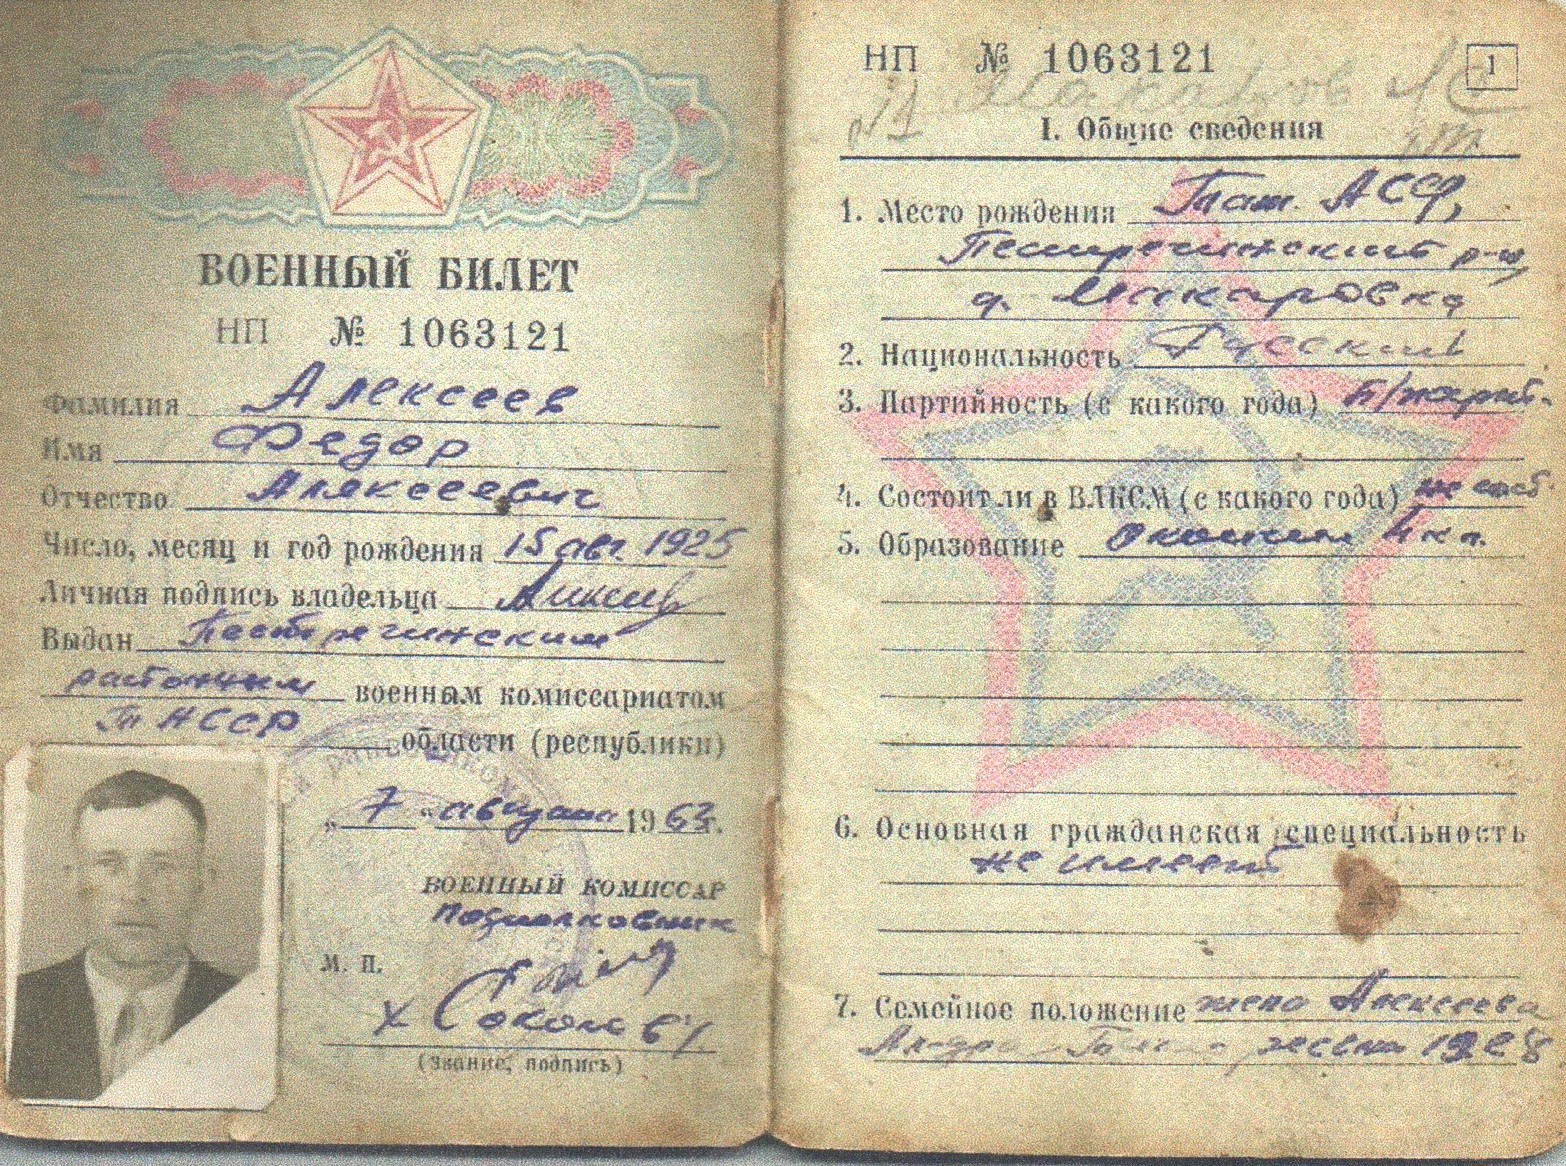 ВОЕННЫЙ БИЛЕТ
НП № 1063121
Фамилия Алексеев
Имя Федор
Отчество Алексеевич
Число, месяц и год рождения 15 авг. 1925
Личная подпись владельца
Выдан Пестречинским
районным военным комиссариатом
ТАССР области (республики)
„ 7 “ августа 1963 г.
ВОЕННЫЙ КОМИССАР
Подполковник
М. П.
Соколов
(звание, подпись)
НП № 1063121
1
I. Общие сведения
1. Место рождения Тат. АССР,
Пестречинский р-н,
д. Макаровка
2. Национальность Русский
3. Партийность (с какого года) б/парт.
4. Состоит ли в ВЛКСМ (с какого года) не сост.
5. Образование окончил 4 кл.
6. Основная гражданская специальность
не имеет
7. Семейное положение жена Алексеева
1928